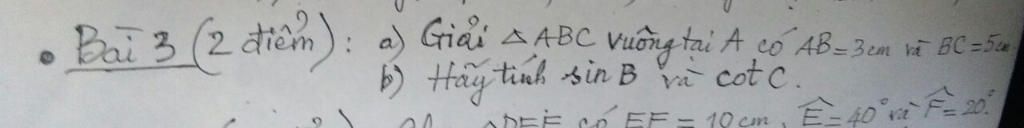 • Bài 3 (2 điểm): a) Giải △ABC vuông tại A có AB = 3 cm và BC = 5 cm
b) Hãy tính sin B và cot C.
△DEF có EF = 10 cm, Ê = 40° và F̂ = 20°.